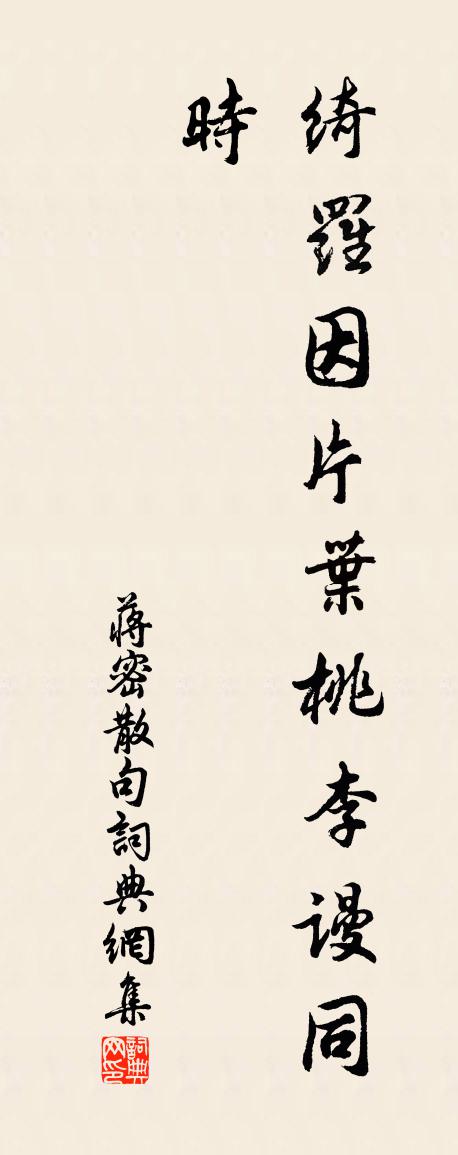 綺羅因片葉桃李謾同
時
蔣密散句詞典網集
詞典网印